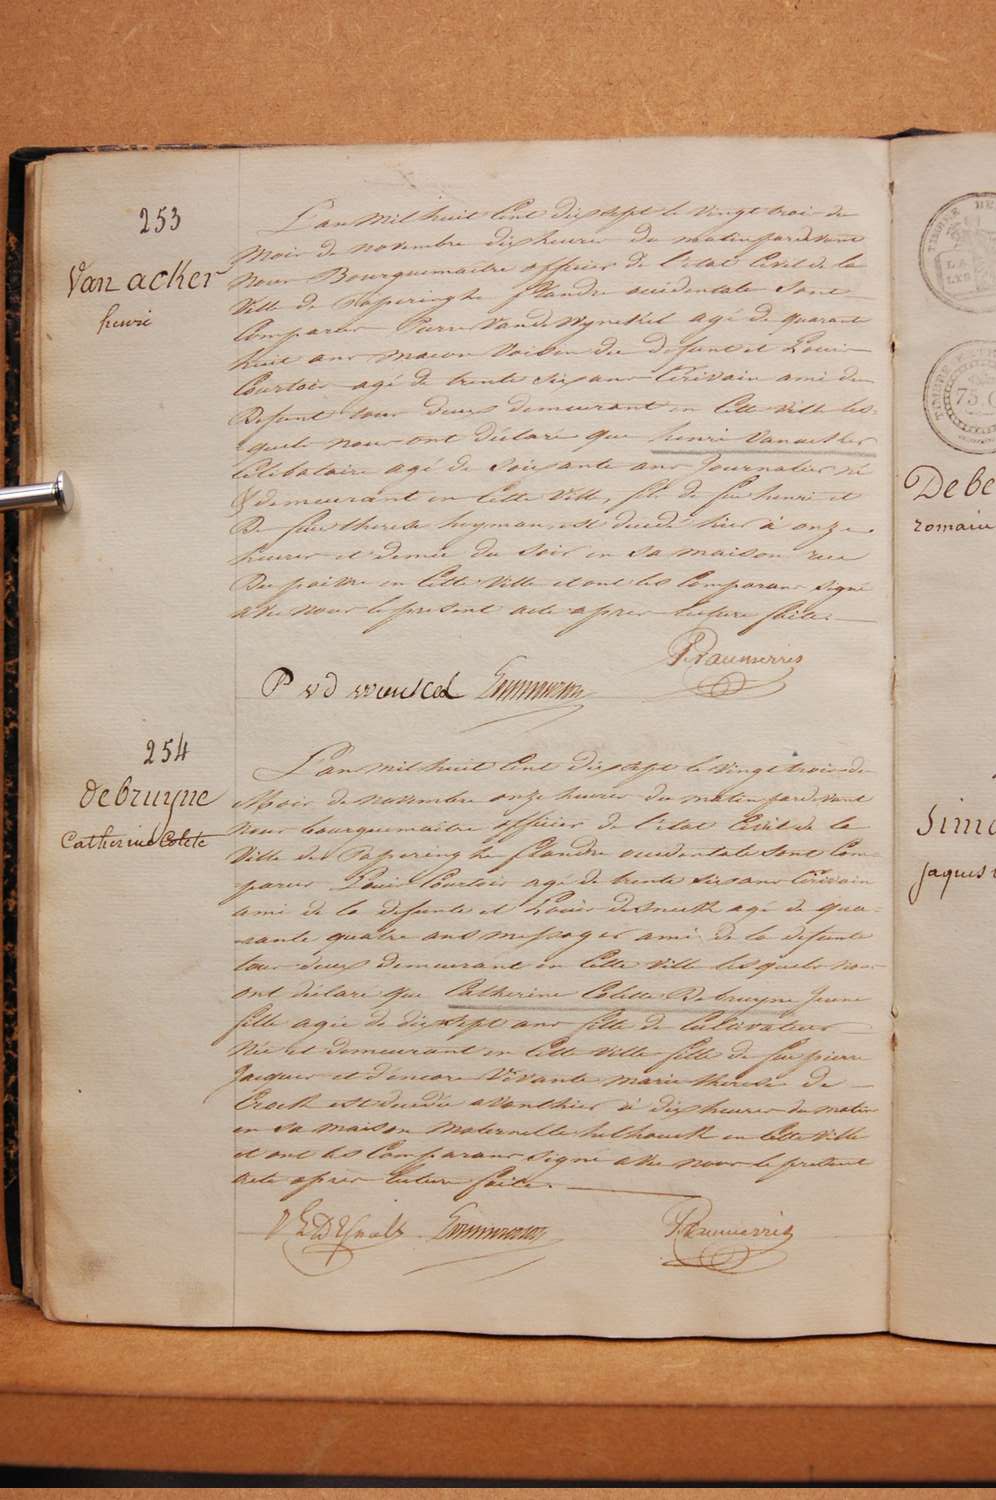 253
Van acker
henri
L'an Mil huit Cent dix sept le vingt trois du
Mois de novembre dix heures du matin pardevant
Nous Bourguemaitre officier de l'état Civil de la
Ville de Poperinghe flandre occidentale Sont
Comparus Pierre Vande Wynckel agé de quarante
huit ans macon Voisin du defunt et Louis
Courtois agé de trente six ans Ecrivain ami du
Defunt tous deux demeurant en Cette Ville les-
quels nous ont déclaré que henri Vanacker
Celibataire agé de Soixante ans Journalier né
& demeurant en Cette Ville, fils de feu henri et
De feue therese heyman, est decedé hier à onze
heures et demie du Soir en Sa maison rue
Du poivre en Cette Ville et ont les Comparans Signé
avec nous le present acte apres lecture faite.
254
debruyne
Catherine Colete
L'an Mil huit Cent dix sept le vingt trois du
Mois de novembre onze heures du matin pardevant
Nous bourguemaitre officier de l'état Civil de la
Ville de Poperinghe flandre occidentale sont Com-
parus Louis Courtois agé de trente six ans Ecrivain
ami de la defunte et Louis agé de qua-
rante quatre ans messager ami de la defunte
tous deux demeurant en Cette Ville lesquels nous
ont déclaré que Catherine Colette Debruyne Jeune
fille agée de dix sept ans fille de Cultivateur
Née et demeurant en Cette Ville fille de feu pierre
Jacques et d'encore Vivante marie therese de
Crock est decedée avanthier à dix heures du matin
en Sa maison maternelle en Cette Ville
et ont les Comparans Signé avec nous le present
Acte après lecture faite.
De be
romain
Simo
jaques
TIMBRE
75